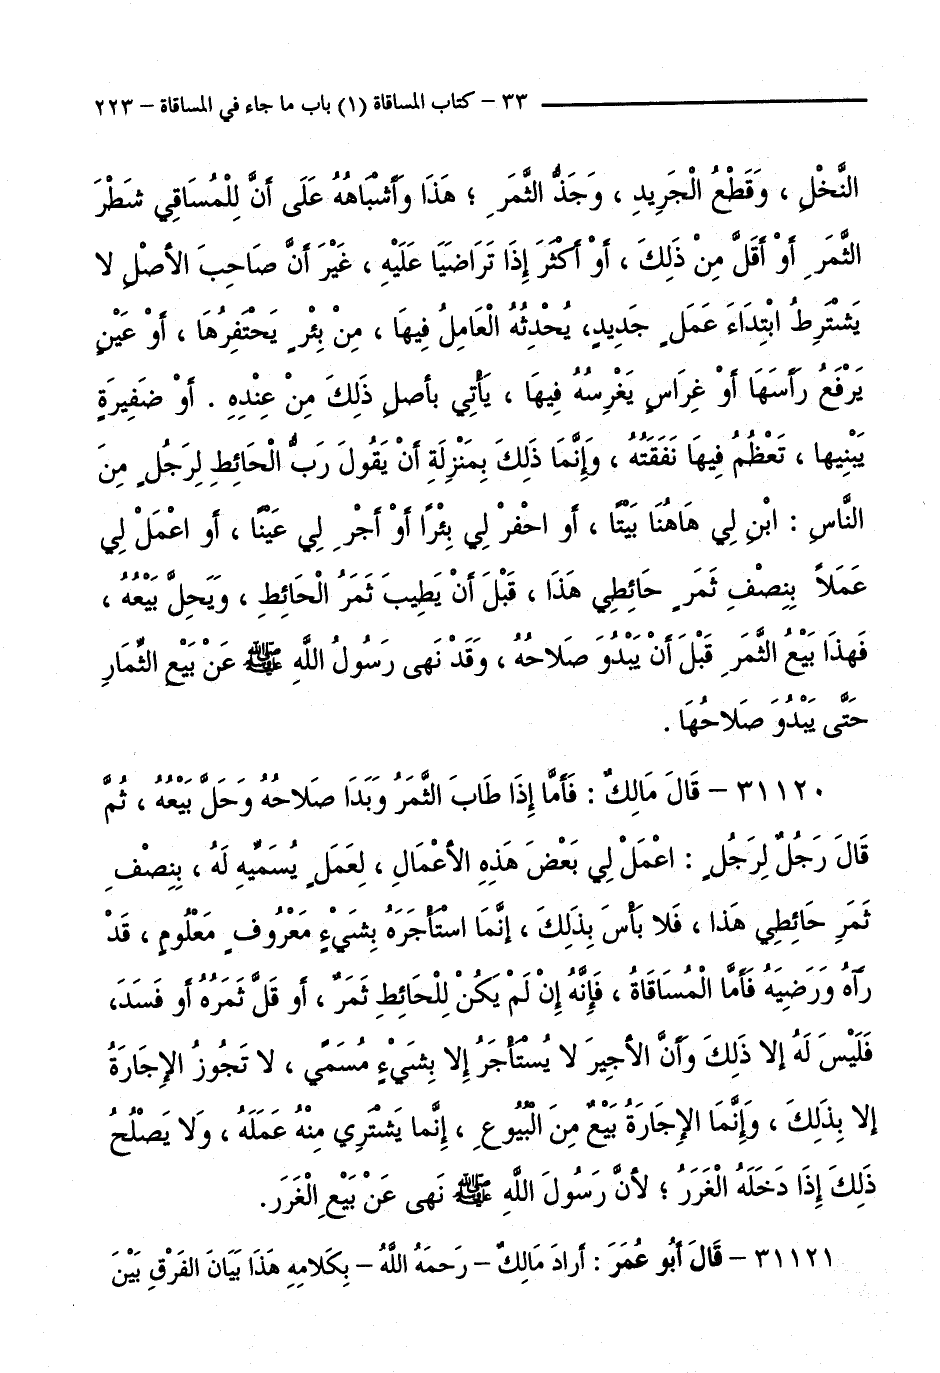 ٣٣ – كتاب المساقاة (١) باب ما جاء في المساقاة – ٢٢٣
النَّخْلِ ، وَقَطْعُ الْجَرِيدِ ، وَجَذُّ الثَّمَرِ ؛ هَذَا وَأَشْبَاهُهُ عَلَى أَنَّ لِلْمُسَاقِي شَطْرَ
الثَّمَرِ أَوْ أَقَلَّ مِنْ ذَلِكَ ، أَوْ أَكْثَرَ إِذَا تَرَاضَيَا عَلَيْهِ ، غَيْرَ أَنَّ صَاحِبَ الأَصْلِ لا
يَشْتَرِطُ ابْتِدَاءَ عَمَلٍ جَدِيدٍ، يُحْدِثُهُ الْعَامِلُ فِيهَا ، مِنْ بِئْرٍ يَحْتَفِرُهَا ، أَوْ عَيْنٍ
يَرْفَعُ رَأْسَهَا أَوْ غِرَاسٍ يَغْرِسُهُ فِيهَا ، يَأْتِي بأصلِ ذَلِكَ مِنْ عِنْدِهِ . أَوْ ضَفِيرَةٍ
يَبْنِيها ، تَعْظُمُ فِيهَا نَفَقَتُهُ ، وَإِنَّمَا ذَلِكَ بِمَنْزِلَةِ أَنْ يَقُولَ رَبُّ الْحَائِطِ لِرَجُلٍ مِنَ
النَّاسِ : ابْنِ لِي هَاهُنَا بَيْتًا ، أو احْفرْ لِي بِئْرًا أَوْ أَجْرِ لِي عَيْنًا ، أو اعْمَلْ لِي
عَمَلاً بِنِصْفِ ثَمَرِ حَائِطِي هَذَا ، قَبْلَ أَنْ يَطِيبَ ثَمَرُ الْحَائِطِ ، وَيَحِلَّ بَيْعُهُ ،
فَهذَا بَيْعُ الثَّمَرِ قَبْلَ أَنْ يَبْدُوَ صَلَاحُهُ ، وَقَدْ نَهى رَسُولُ اللَّهِ ﷺ عَنْ بَيْعِ الثِّمَارِ
حَتَّى يَبْدُوَ صَلَاحُهَا .
٣١١٢٠ – قَالَ مَالِكٌ : فَأَمَّا إِذَا طَابَ الثَّمَرُ وَبَدَا صَلَاحُهُ وَحَلَّ بَيْعُهُ ، ثُمَّ
قَالَ رَجُلٌ لِرَجُلٍ : اعْمَلْ لِي بَعْضَ هَذِهِ الأَعْمَالِ ، لِعَمَلٍ يُسَمِّيهِ لَهُ ، بِنِصْفِ
ثَمَرِ حَائِطِي هَذا ، فَلا بَأْسَ بِذَلِكَ ، إِنَّمَا اسْتَأْجَرَهُ بِشَيْءٍ مَعْرُوفٍ مَعْلُومٍ ، قَدْ
رَآهُ وَرَضِيَهُ فَأَمَّا الْمُسَاقَاةُ ، فَإِنَّهُ إِنْ لَمْ يَكُنْ لِلْحَائِطِ ثَمَرٌ ، أَو قَلَّ ثَمَرُهُ أَو فَسَدَ،
فَلَيْسَ لَهُ إِلا ذَلِكَ وَأَنَّ الأَجِيرَ لا يُسْتَأْجَرُ إِلا بِشَيْءٍ مُسَمًّى ، لا تَجُوزُ الإِجَارَةُ
إِلا بِذَلِكَ ، وَإِنَّمَا الإِجَارَةُ بَيْعٌ مِنَ الْبُيُوعِ ، إِنَّما يَشْتَرِي مِنْهُ عَمَلَهُ ، وَلا يَصْلُحُ
ذَلِكَ إِذَا دَخَلَهُ الْغَرَرُ ؛ لأَنَّ رَسُولَ اللَّهِ ﷺ نَهى عَنْ بَيْعِ الْغَرَرِ.
٣١١٢١ – قَالَ أَبُو عُمَرَ : أَرَادَ مَالِكٌ – رَحمَهُ اللَّهُ – بِكَلامِهِ هَذَا بَيَانَ الفَرْقِ بَيْنَ